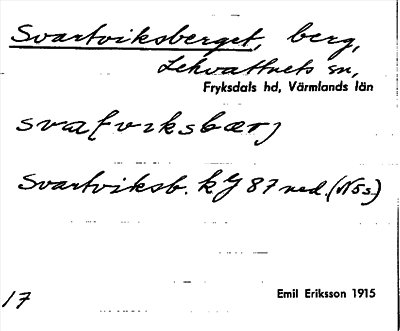 Svartviksberget, berg,
Lekvattnets sn,
Fryksdals hd, Värmlands län
svaʈviksbærj
Svartviksb. kg 87 ned. (Nss)
17
Emil Eriksson 1915